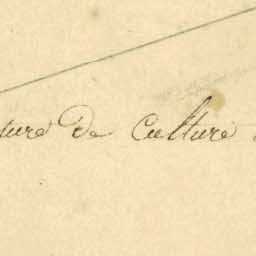 ture de Culture